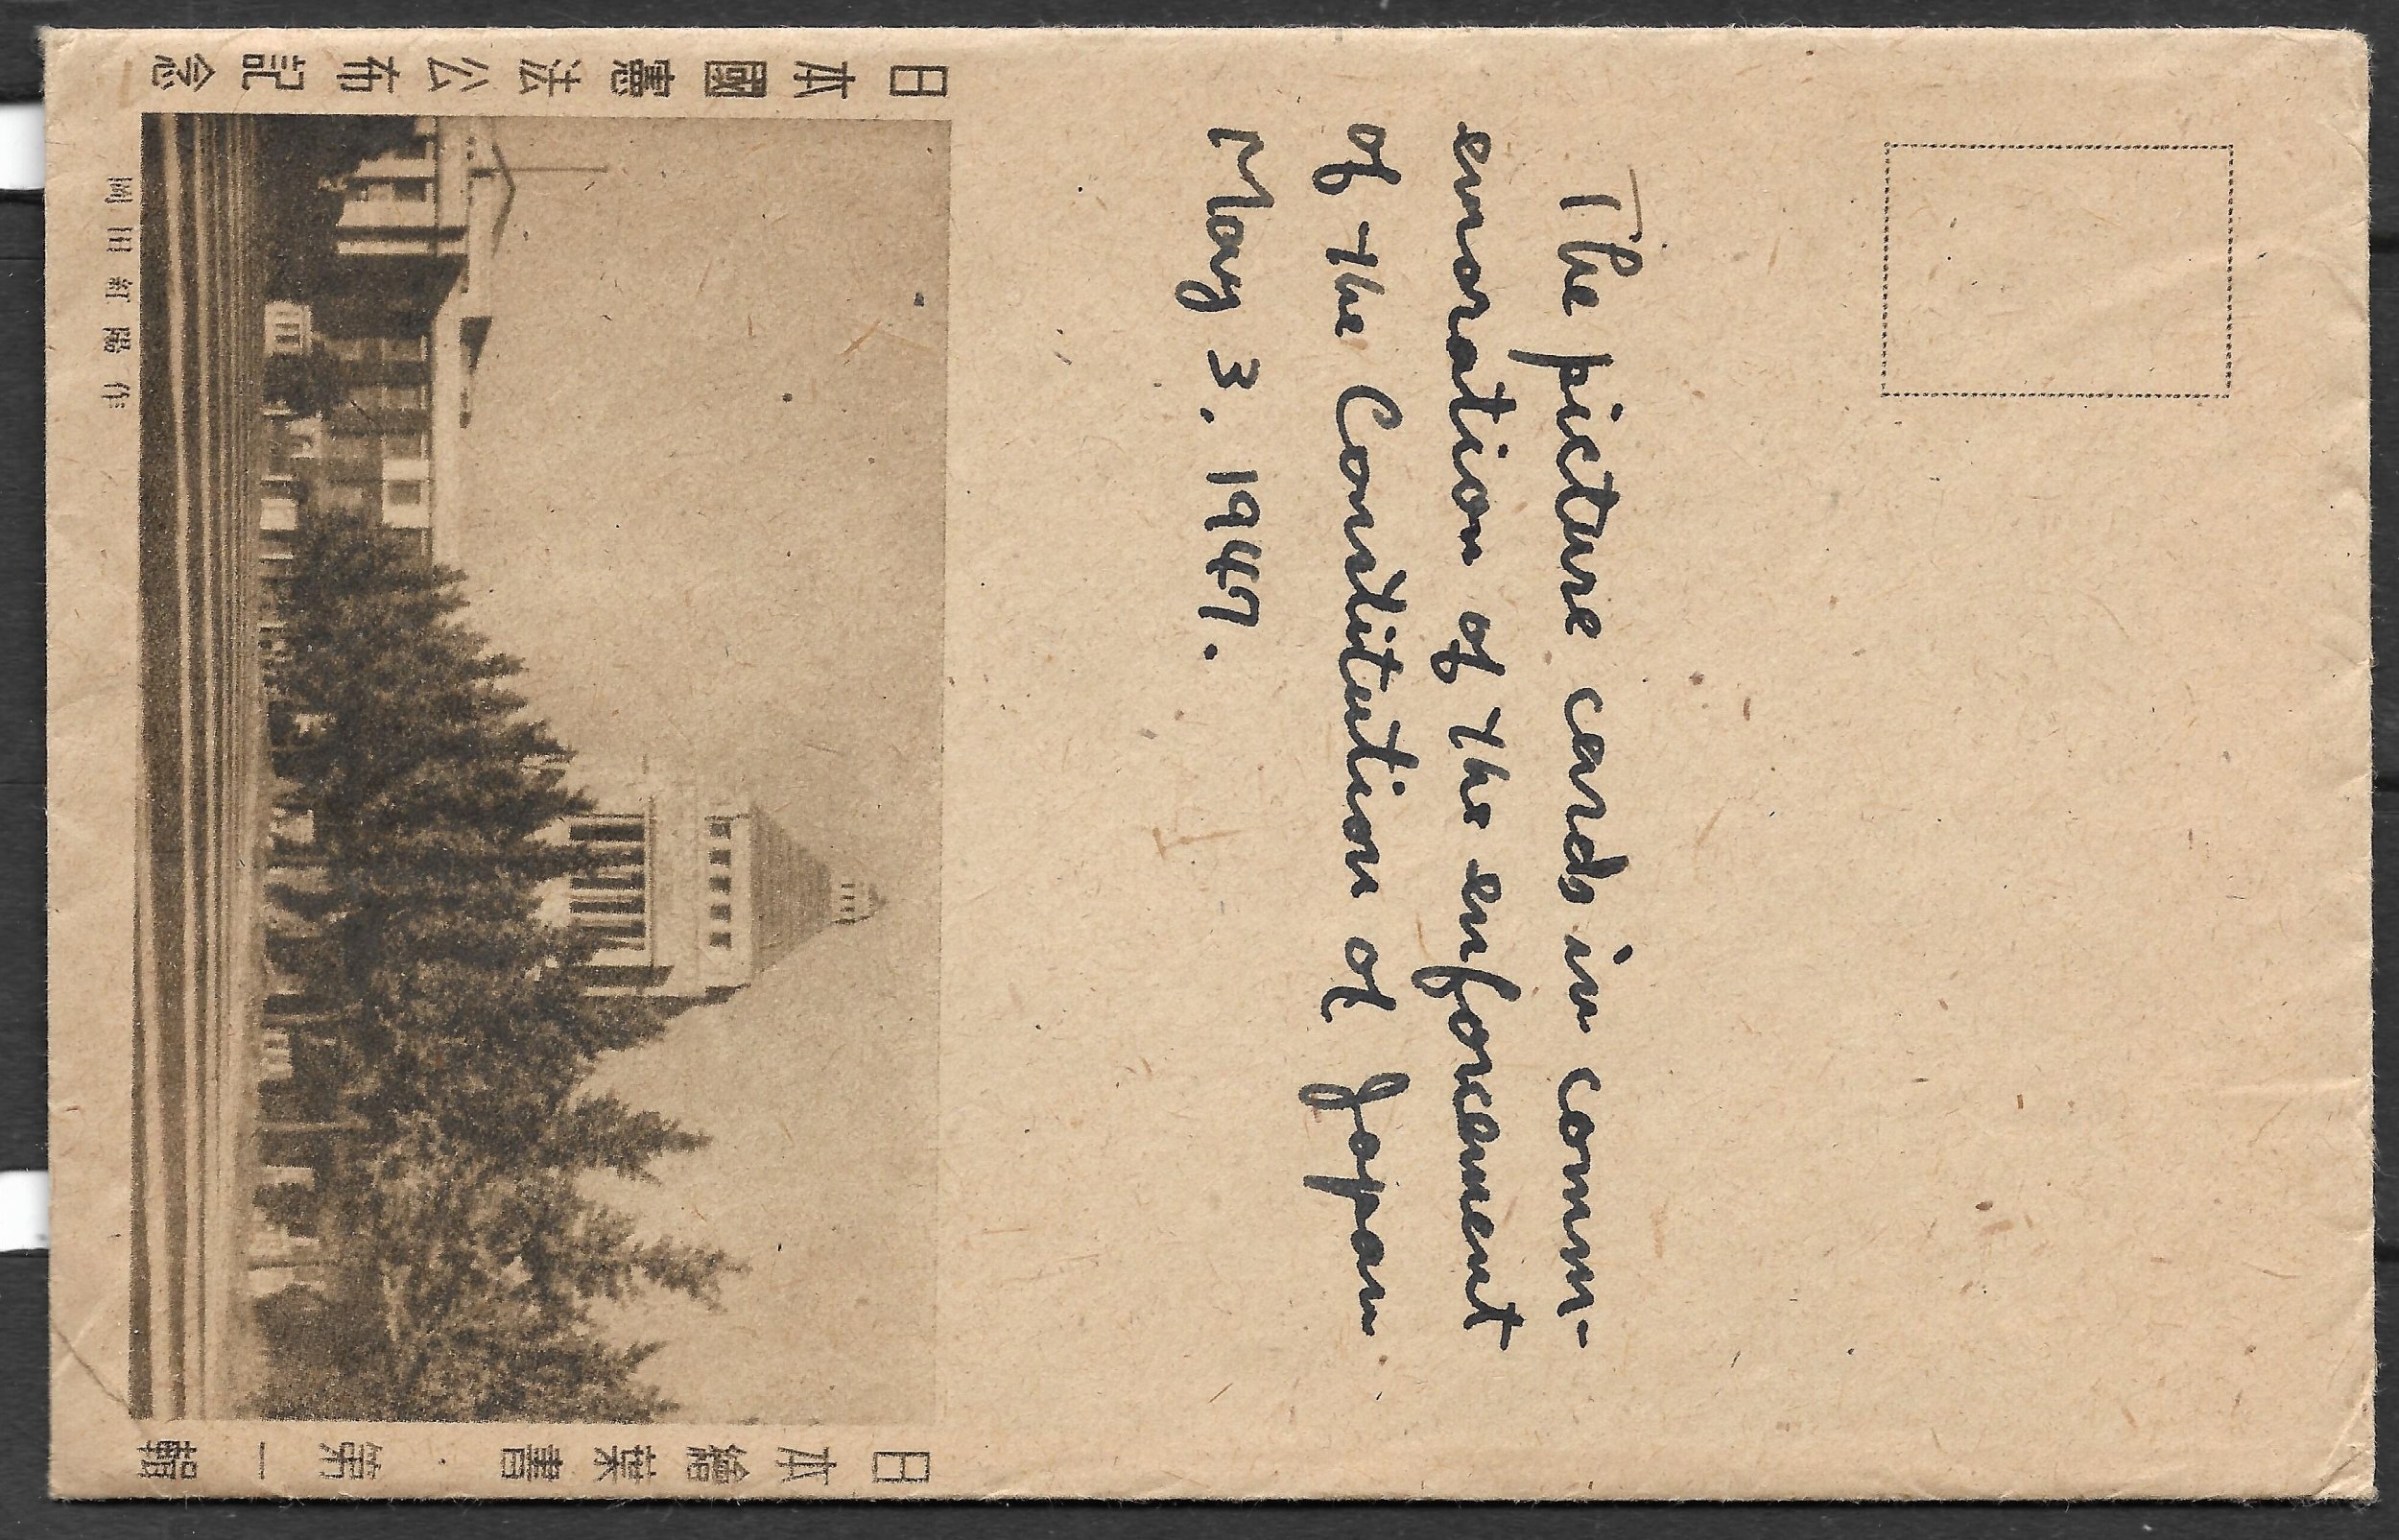 The picture cards in comm-
emoration of the enforcement
of the Constitution of Japan
May 3, 1947.
日本繪葉書 第一輯
日本國憲法公布記念
岡田紅陽作